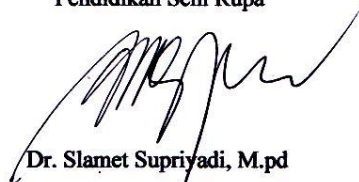 Pendidikan Seni Rupa
Dr. Slamet Supriyadi, M.pd